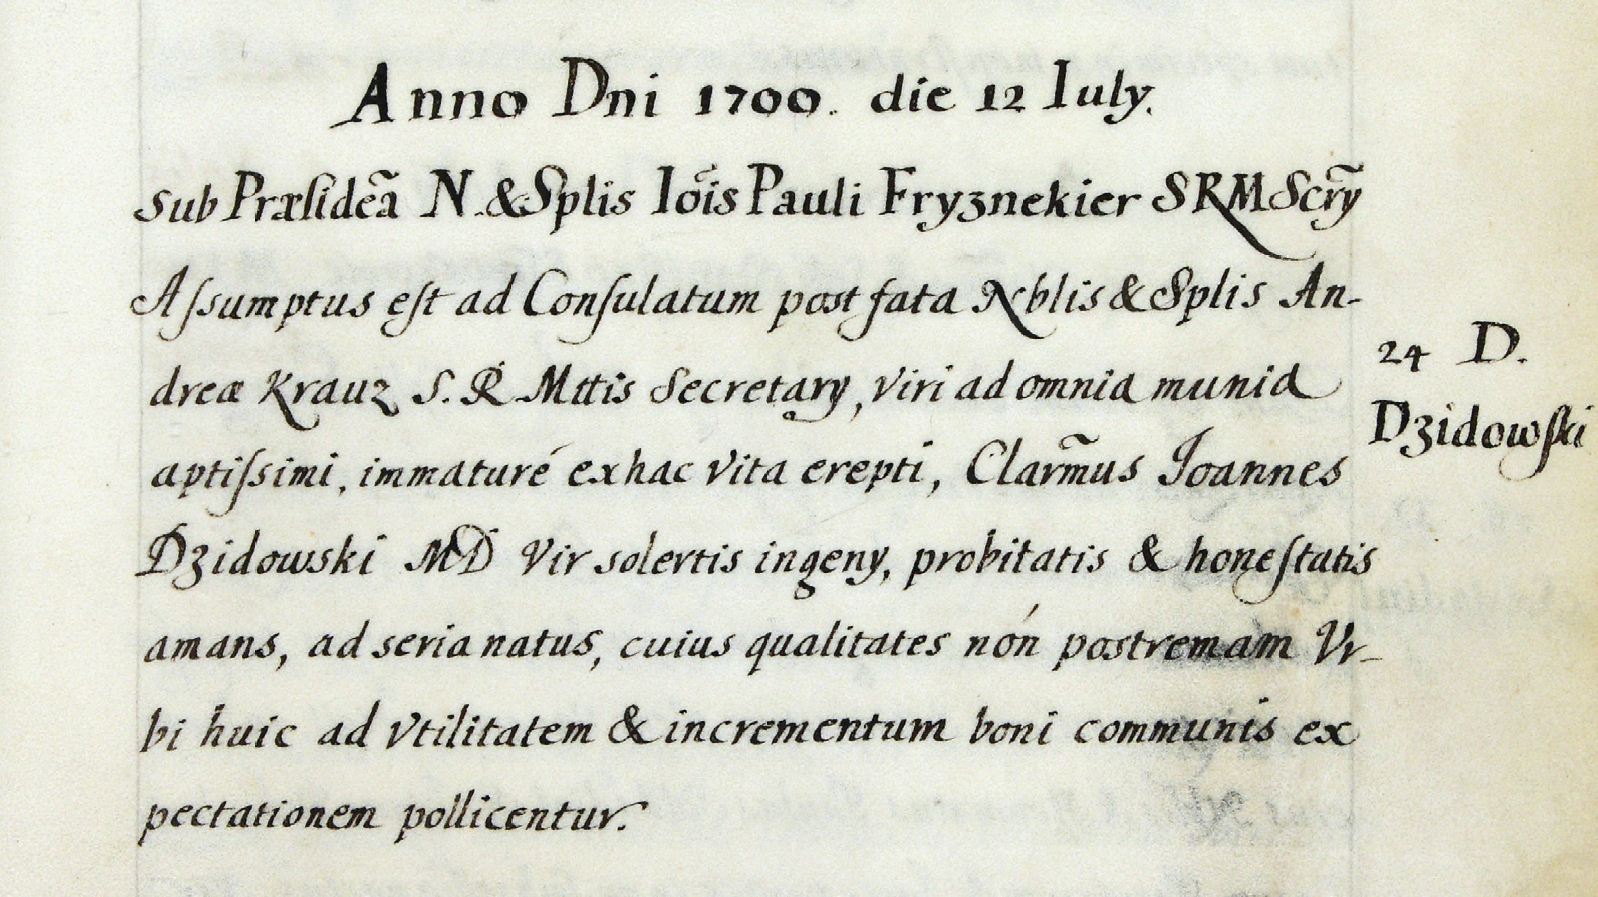 Anno Dni 1700. die 12 Iuly.
Sub Præſideã N. & Splis Iõis Pauli Fryznekier SRM Scrỹ
Aſsumptus eſt ad Conſulatum post fata Nblis & Splis An-
dreæ Krauz S. R Mttis Secretary, Viri ad omnia munia
aptiſsimi, immaturé ex hac Vita erepti, Clarm̃us Joannes
Dzidowski MD Vir solertis ingeny, probitatis & honeſtatis
amans, ad seria natus, cuius qualitates nón postremam Vr-
bi huic ad Vtilitatem & incrementum boni communis ex
pectationem pollicentur.
24 D.
Dzidowſki